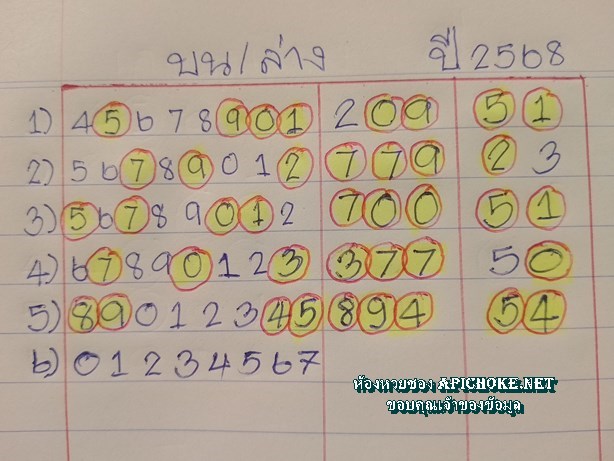 บน/ล่าง ปี 2568
1) 4 5 6 7 8 9 0 1 209 51
2) 5 6 7 8 9 0 1 2 779 23
3) 5 6 7 8 9 0 1 2 700 51
4) 6 7 8 9 0 1 2 3 377 50
5) 8 9 0 1 2 3 4 5 894 54
6) 0 1 2 3 4 5 6 7
ห้องหวยซอง APICHOKE.NET
ขอบคุณเจ้าของข้อมูล